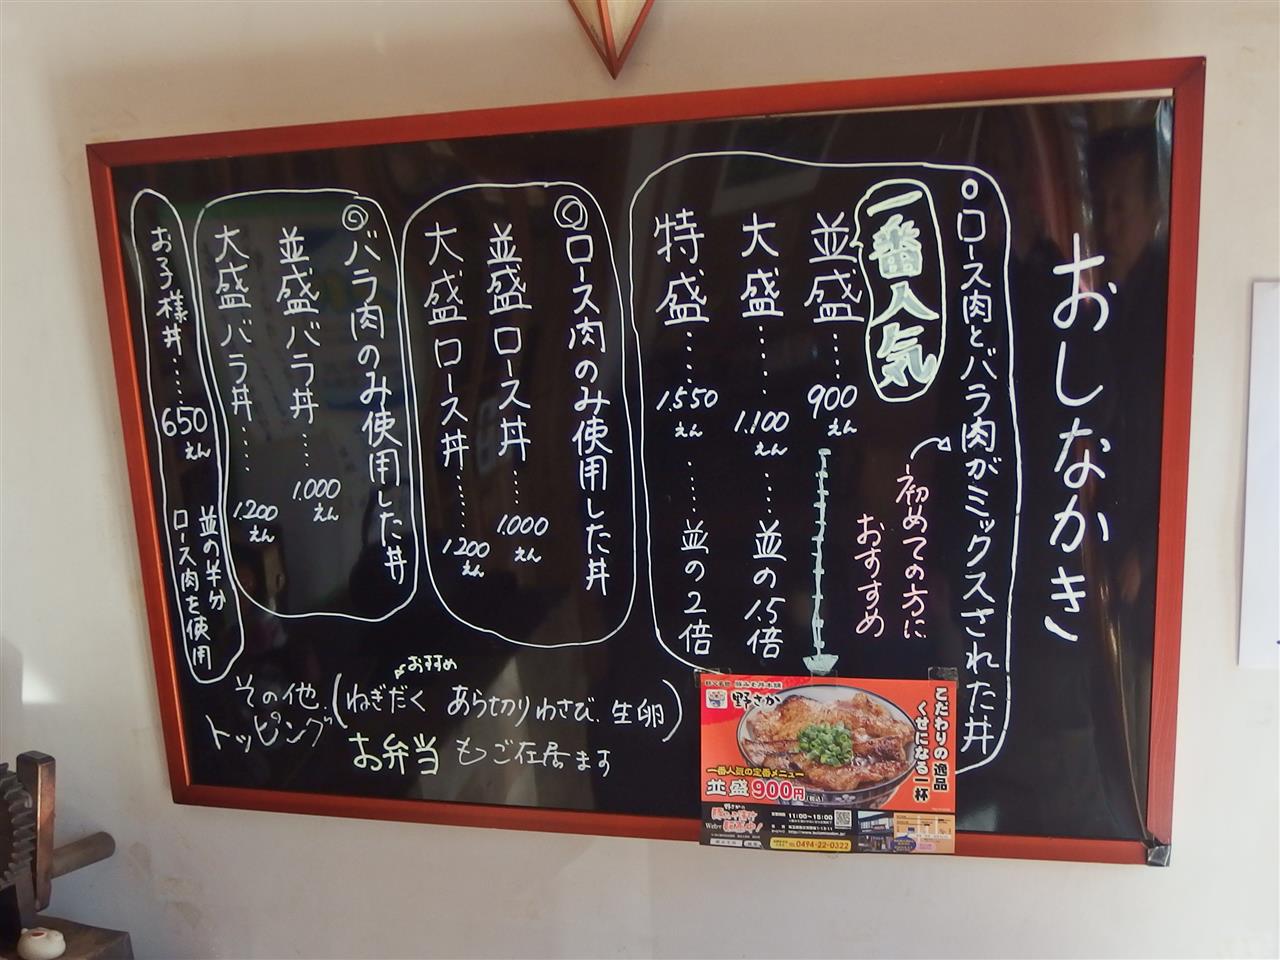 おしなきがき
ロース肉とバラ肉がミックスされた丼
一番人気
初めての方に
おすすめ
並盛……900えん
大盛……1,100えん……並の1.5倍
特盛……1,550えん……並の2倍
◎ロース肉のみ使用した丼
並盛ロース丼……1,000えん
大盛ロース丼……1,200えん
◎バラ肉のみ使用した丼
並盛バラ丼……1,000えん
大盛バラ丼……1,200えん
お子様丼……650えん
並の半分
ロース肉を使用
その他、
トッピング
おすすめ
(ねぎだく あらせ切りわさび、生卵)
お弁当もご在居ます
秩父名物 豚みそ丼本舗
野さか
こだわりの逸品
くせになる一杯
一番人気の定番メニュー
並盛900円(税込)
野さかの
Webで
11:00〜15:00
TEL 0494-22-0322